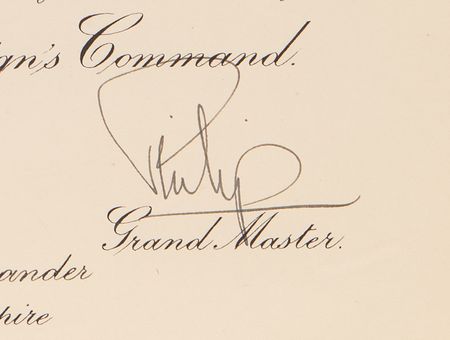 gn's Command.
Philip
Grand Master.
ander
pire